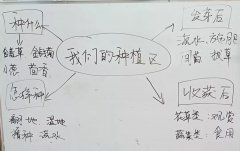 种什么
小葱 茴香
怎样种
翻地 湿地
播种 浇水
我们的种植区
发芽后
浇水、施肥
间苗 拔草
收获后
花草类:观赏
蔬菜类:食用